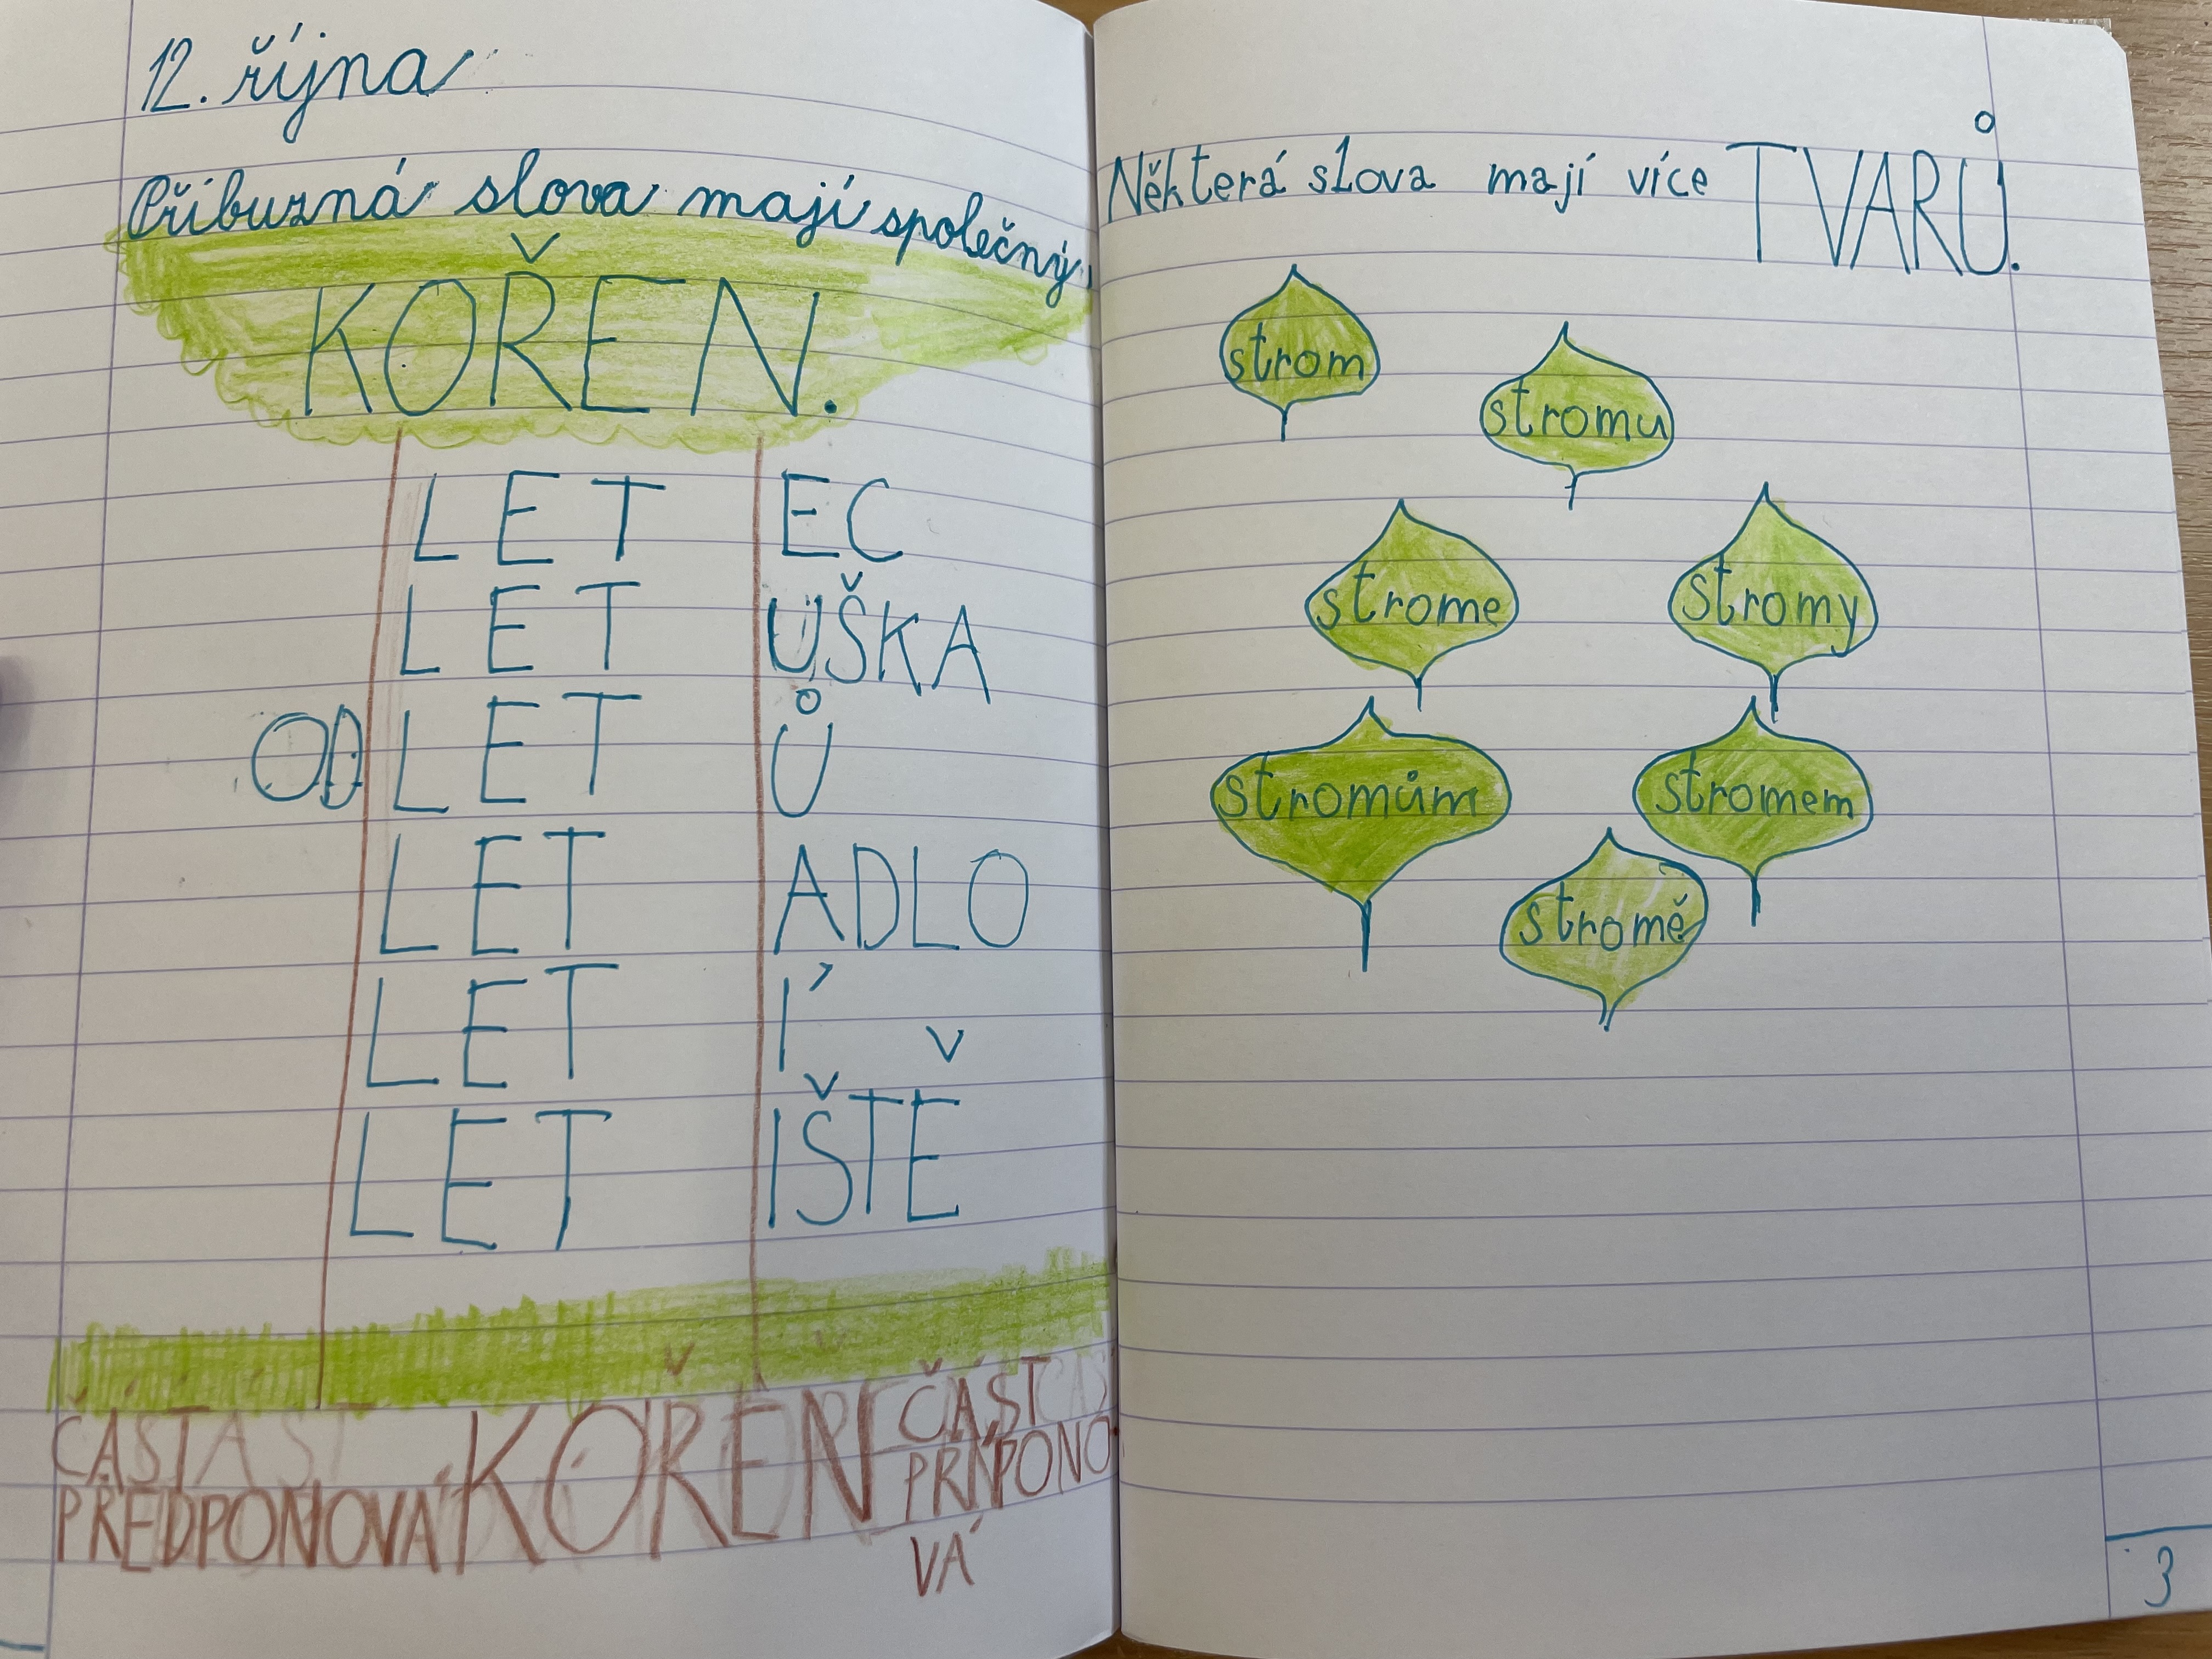 12. října
Příbuzná slova mají společný
KOŘEN.
LET EC
LET UŠKA
OD LET Ů
LET ADLO
LET Í
LET IŠTĚ
ČÁST
PŘEDPONOVÁ
KOŘEN
ČÁST
PŘÍPONO-
VÁ
Některá slova mají více TVARŮ.
strom
stromu
strome
stromy
stromům
stromem
stromě
3